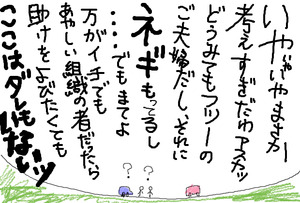 いやいやいやまさかー
考えすぎだわアスカッ
どうみてもフツーの
ご夫婦だし、それに
ネギもってるし
・・・・でもまてよ
万がイチでも
あやしい組織の者だったら
助けをよびたくても
ここはダレもいないッ
? ?